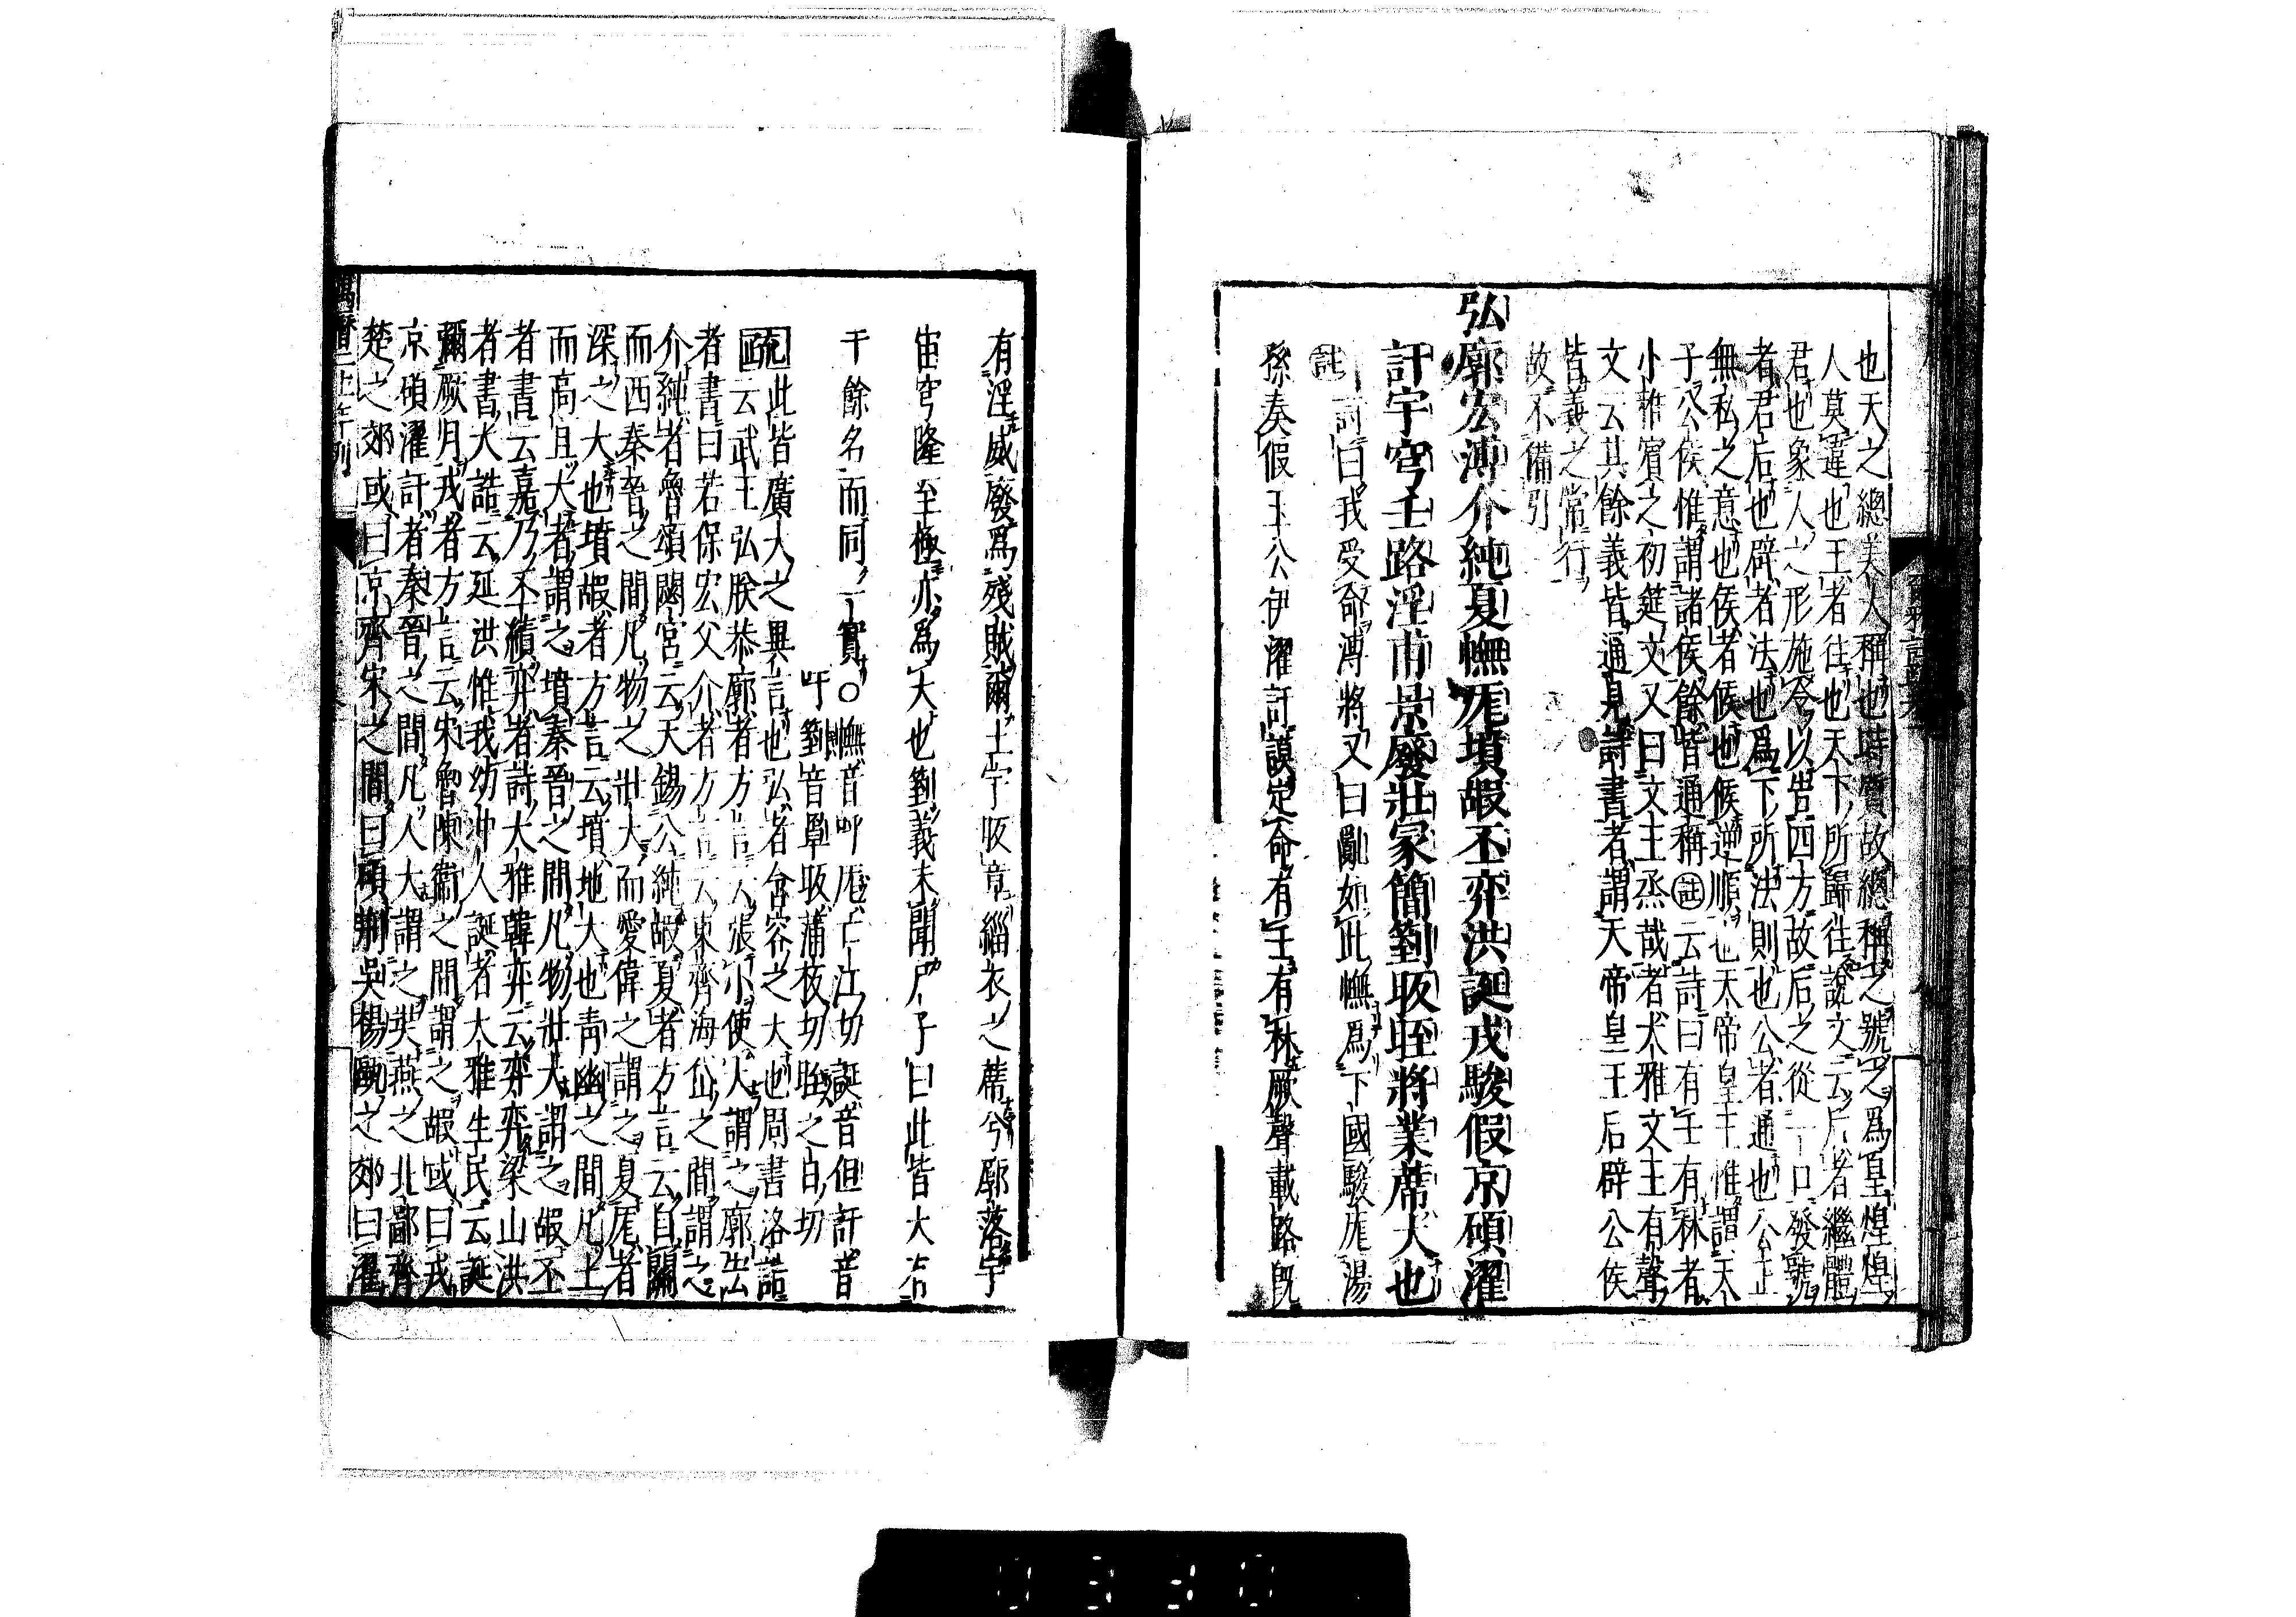 也天之總美大稱也時質故總稱之號之爲皇煌煌
人莫違也王者往也天下所歸往說文云后者繼體
君也象人之形施令以告四方故后之從一口發號
者君后也辟者法也爲下所法則也公者通也公正
無私之意也侯者候也候逆順也天帝皇王惟謂天
子公侯惟謂諸侯餘皆通稱註云詩曰有壬有林者
小雅賓之初筵文文又曰文王烝哉者大雅文王有聲
文云其餘義皆通見詩書者謂天帝皇王后辟公侯
皆義之常行
故不備引
弘廓宏溥介純夏幠厖墳嘏丕弈洪誕戎駿假京碩濯
訏宇穹壬路淫甫景廢壯冢簡箌昄晊將業蓆大也
註詩曰我受命溥將又曰亂如此幠爲下國駿厖湯
孫奏假王公伊濯訏謨定命有壬有林厥聲載路旣
有淫威廢爲殘賊爾土宇昄章緇衣之蓆兮廓落宇
宙穹隆至極亦爲大也箌義未聞尸子曰此皆大有
十餘名而同一實○幠音呼厖亡江切誕音但訏音
吁箌音罩昄蒲板切晊之日切
疏此皆廣大之異言也弘者含容之大也周書洛誥
云武王弘朕恭廓者方言云張小使大謂之廓宏
者書曰若保宏父介者方言云東齊海岱之間謂之
介純者魯頌閟宮云天錫公純嘏夏者方言云自關
而西秦晉之間凡物之壯大而愛偉之謂之夏厖者
深之大也墳嘏者方言云墳地大也靑幽之間凡土
而高且大者謂之墳秦晉之間凡物壯大謂之嘏丕
者書云嘉乃丕績弈者詩大雅韓弈云弈弈梁山洪
者書大誥云延洪惟我幼冲人誕者大雅生民云誕
彌厥月戎者方言云宋魯陳衞之間謂之嘏或曰戎
京碩濯訏者秦晉之間凡人大謂之奘燕之北鄙齊
楚之郊或曰京齊宋之間曰碩荆吳楊甌之郊曰濯